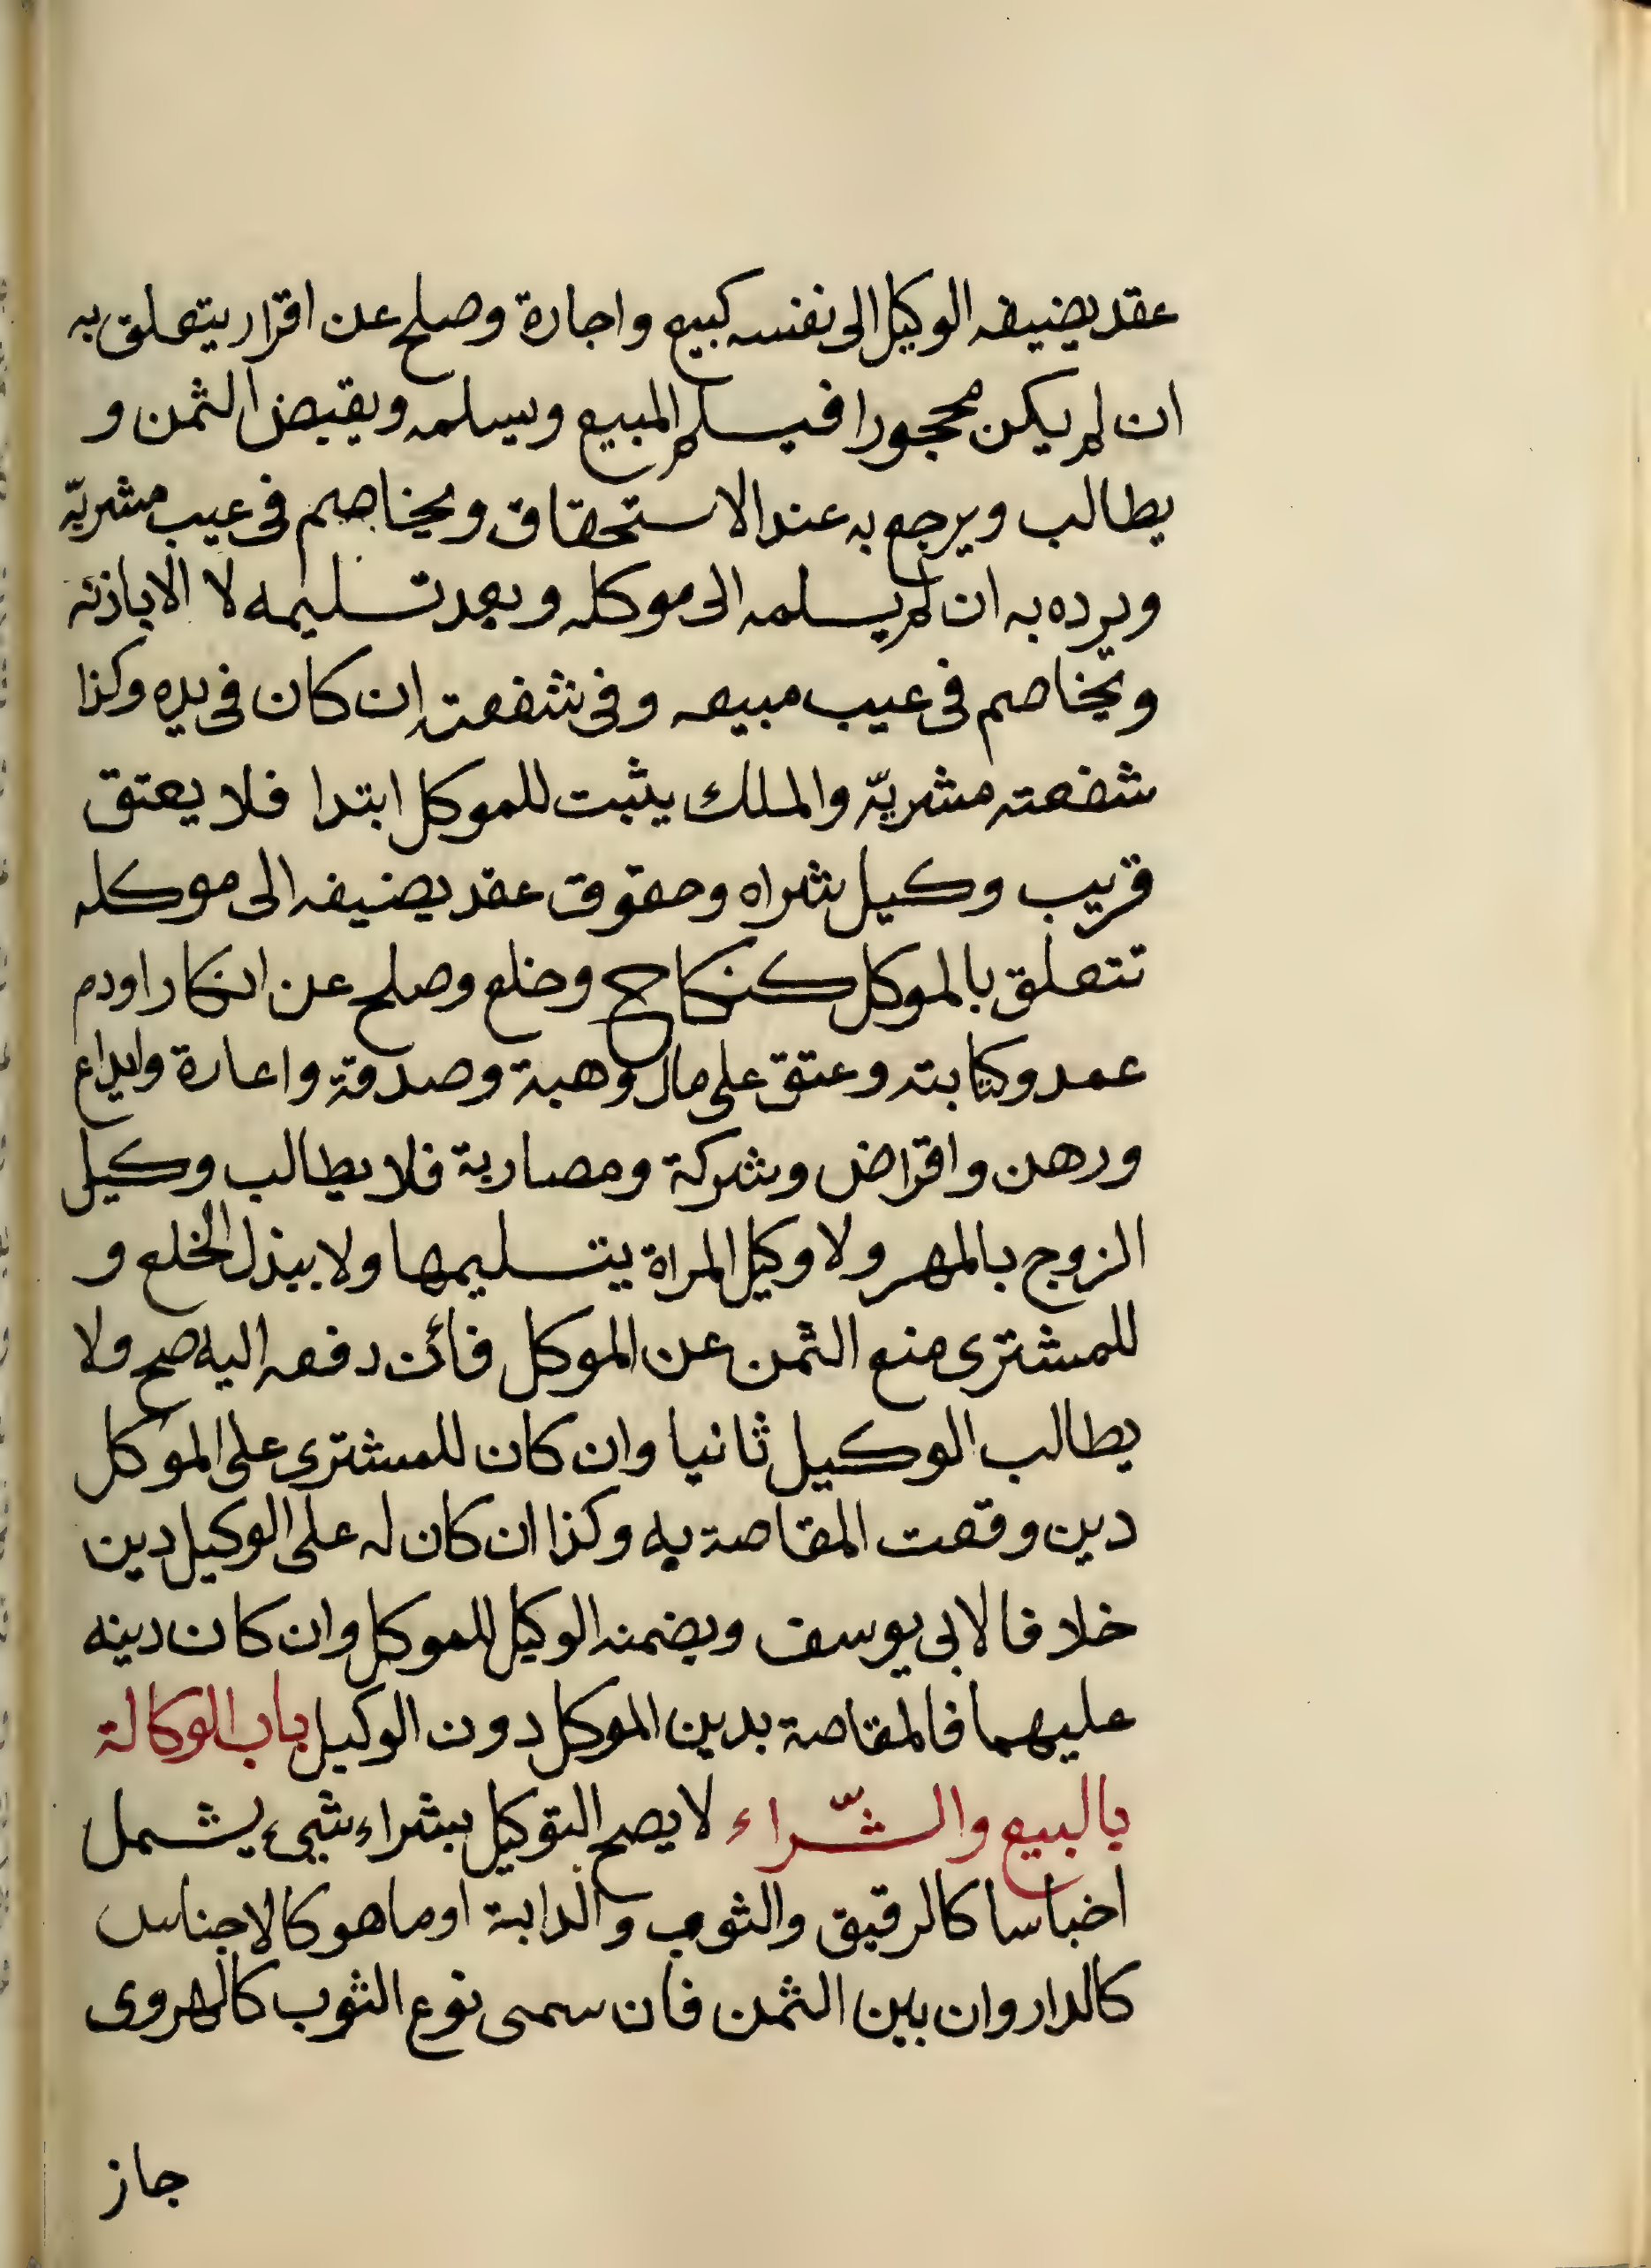 عقد يضيفه الوكيل الى نفسه كبيع واجارة وصلح عن اقرار يتعلق به
ان لم يكن محجورا فيسلم المبيع ويسلمه ويقبض الثمن و
يطالب ويرجع به عند الاستحقاق ويخاصم فى عيب مشريّه
ويرده به ان لم يسلمه الى موكله وبعد تسليمه لا الا باذنه
ويخاصم فى عيب مبيعه وفى شفعته ان كان فى يده وكذا
شفعته مشريّه والملك يثبت للموكل ابتدا فلا يعتق
قريب وكيل شراه وحقوق عقد يضيفه الى موكله
تتعلق بالموكل كنكاح وخلع وصلح عن انكار اودم
عمد وكتابته وعتق على مال وهبة وصدقة واعارة وايداع
ورهن واقراض وشركة ومصاربة فلا يطالب وكيل
الزوج بالمهر ولا وكيل المراة يتسليمها ولا ببذل الخلع و
للمشترى منع الثمن عن الموكل فائن دفعه اليه صح ولا
يطالب الوكيل ثانيا وان كان للمشترى على الموكل
دين وقعت المقاصة به وكذا ان كان له على الوكيل دين
خلافا لابى يوسف ويضمنه الوكيل للموكل وان كان دينه
عليهما فالمقاصة بدين الموكل دون الوكيل باب الوكالة
بالبيع والشّراء لا يصح التوكيل بشراء شىء يشمل
اخباسا كالرقيق والثوب والدابة اوما هو كالاجناس
كالدار وان بين الثمن فان سمى نوع الثوب كالهروى
جاز